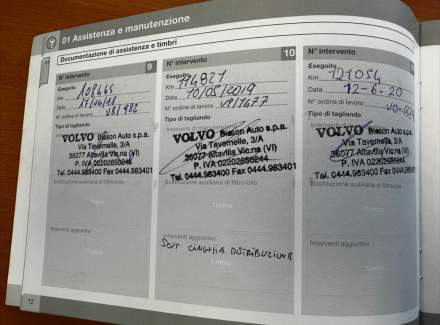 01 Assistenza e manutenzione
Documentazione di assistenza e timbri
N° intervento 9
Eseguito
Km 108465
Data 17/04/18
N° ordine di lavoro
Tipo di tagliando
VOLVO Bisson Auto s.p.a.
Via Tavernelle, 3/A
36077 Altavilla Vic.na (VI)
P. IVA 02202650244
Tel. 0444.983400 Fax 0444.983401
Sostituzione ausiliaria di filtro/olio
Interventi aggiuntivi
Timbro
N° intervento 10
Eseguito
Km 114827
Data 10/05/2019
N° ordine di lavoro
Tipo di tagliando
VOLVO Bisson Auto s.p.a.
Via Tavernelle, 3/A
36077 Altavilla Vic.na (VI)
P. IVA 02202650244
Tel. 0444.983400 Fax 0444.983401
Sostituzione ausiliaria di filtro/olio
Interventi aggiuntivi
SOST CINGHIA DISTRIBUZIONE
N° intervento
Eseguito
Km 121054
Data 12-6-20
N° ordine di lavoro
Tipo di tagliando
VOLVO Bisson Auto s.p.a.
Via Tavernelle, 3/A
36077 Altavilla Vic.na (VI)
P. IVA 02202650244
Tel. 0444.983400 Fax 0444.983401
Sostituzione ausiliaria di filtro/olio
Interventi aggiuntivi
12